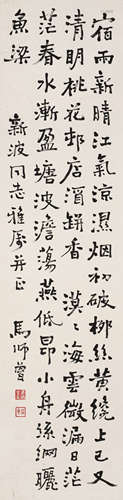 宿雨新晴江气凉湿烟初破柳丝黄绕上已又
清明桃花邨店酒缾香　漠漠海雲微漏日茫
茫春水漸盈塘波澹蕩燕低昂小舟絲網曬
魚梁
新波同志雅屬并正
馬師曾